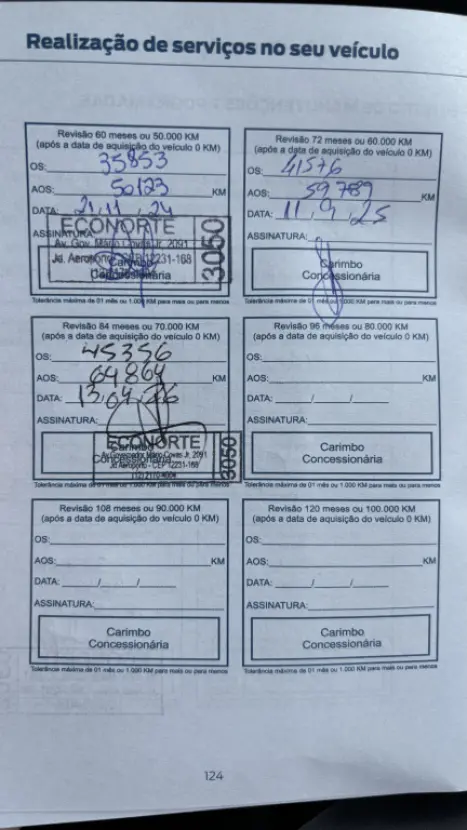 Realização de serviços no seu veículo
Revisão 60 meses ou 50.000 KM
(após a data de aquisição do veículo 0 KM)
OS: 35853
AOS: 50123 KM
DATA: 21/11/24
ASSINATURA:
ECONORTE
Av. Gov. Mário Covas Jr, 2091
Jd. Aeroporto - CEP 12231-168
3050
Carimbo
Concessionária
Tolerância máxima de 01 mês ou 1.000 KM para mais ou para menos
Revisão 72 meses ou 60.000 KM
(após a data de aquisição do veículo 0 KM)
OS: 41576
AOS: 59789 KM
DATA: 11/9/25
ASSINATURA:
Carimbo
Concessionária
Tolerância máxima de 01 mês ou 1.000 KM para mais ou para menos
Revisão 84 meses ou 70.000 KM
(após a data de aquisição do veículo 0 KM)
OS: 45356
AOS: 64864 KM
DATA: 13/04/26
ASSINATURA:
ECONORTE
Av. Governador Mário Covas Jr, 2091
Jd Aeroporto - CEP 12231-168
3050
Carimbo
Concessionária
Tolerância máxima de 01 mês ou 1.000 KM para mais ou para menos
Revisão 96 meses ou 80.000 KM
(após a data de aquisição do veículo 0 KM)
OS:
AOS: KM
DATA: / /
ASSINATURA:
Carimbo
Concessionária
Tolerância máxima de 01 mês ou 1.000 KM para mais ou para menos
Revisão 108 meses ou 90.000 KM
(após a data de aquisição do veículo 0 KM)
OS:
AOS: KM
DATA: / /
ASSINATURA:
Carimbo
Concessionária
Tolerância máxima de 01 mês ou 1.000 KM para mais ou para menos
Revisão 120 meses ou 100.000 KM
(após a data de aquisição do veículo 0 KM)
OS:
AOS: KM
DATA: / /
ASSINATURA:
Carimbo
Concessionária
Tolerância máxima de 01 mês ou 1.000 KM para mais ou para menos
124